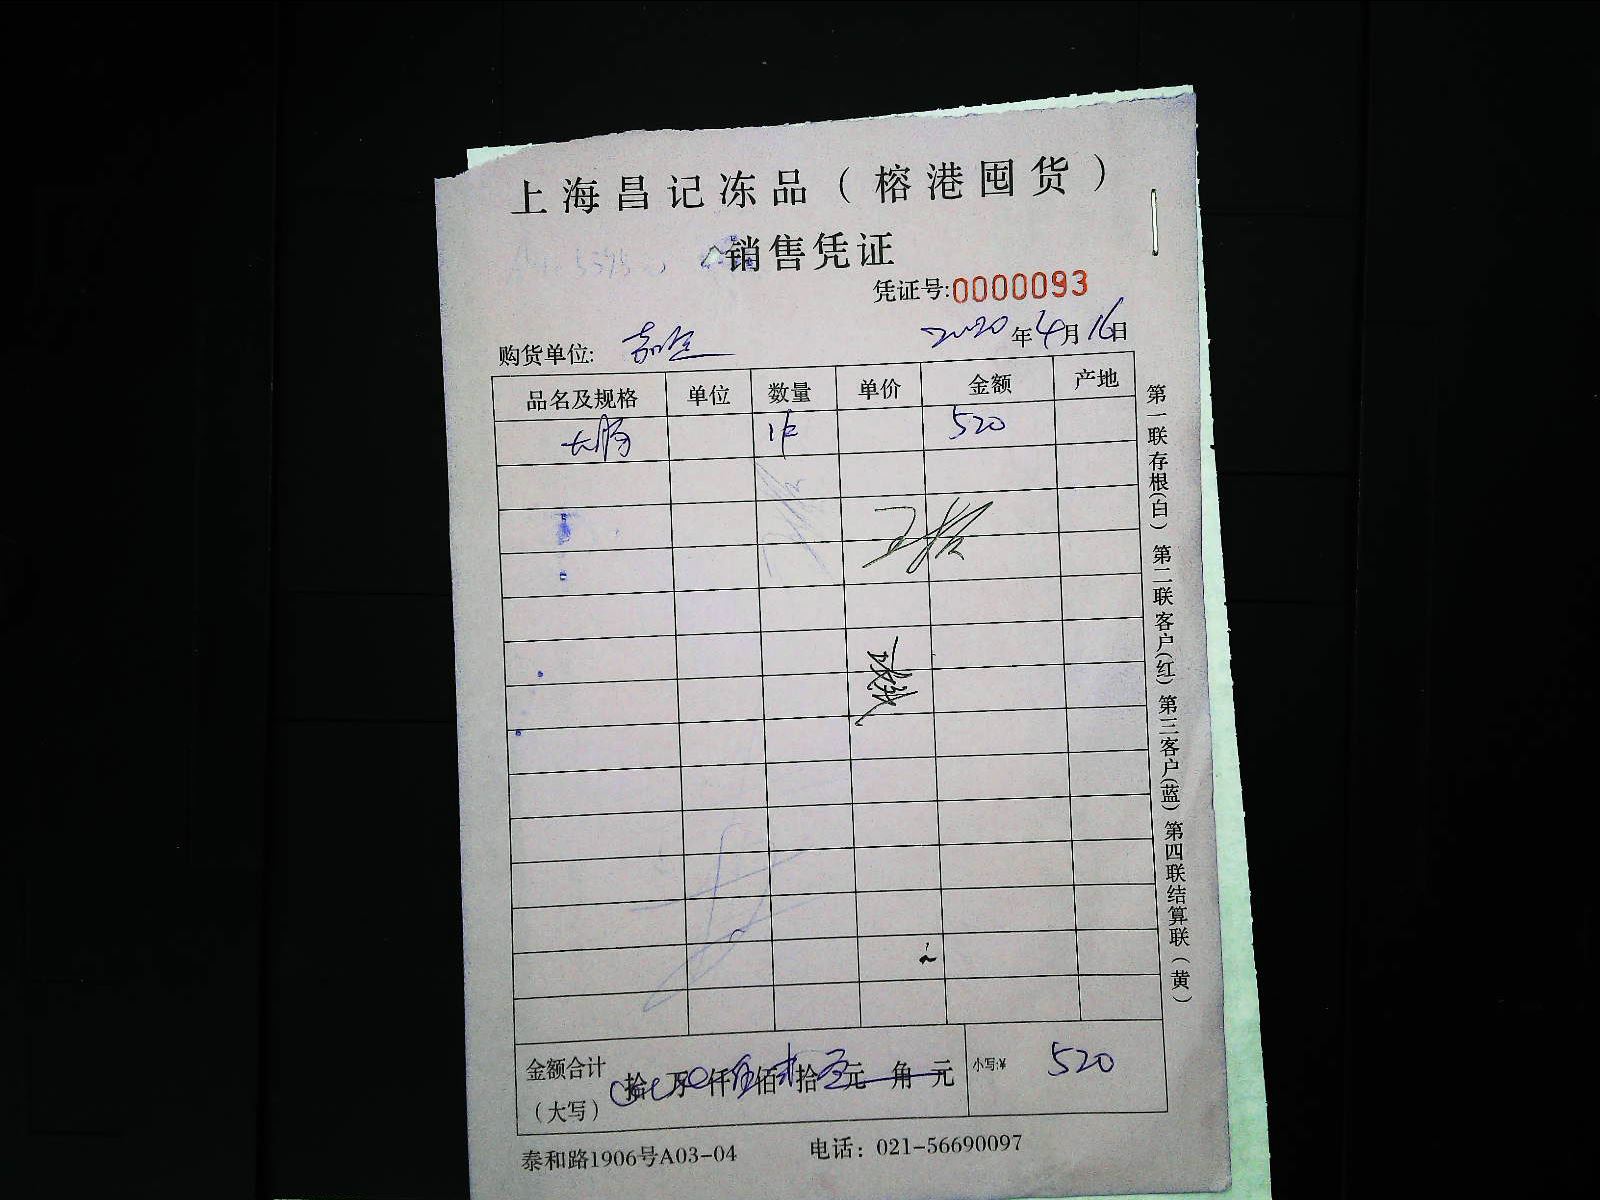 上海昌记冻品（榕港囤货）
销售凭证
凭证号:0000093
购货单位: 2020年4月16日
品名及规格 单位 数量 单价 金额 产地
大肠 1件 520
金额合计（大写） 拾 万 仟伍佰贰拾零元 角 元 小写:¥ 520
泰和路1906号A03-04 电话：021-56690097
第一联存根(白) 第二联客户(红) 第三客户(蓝) 第四联结算联（黄）